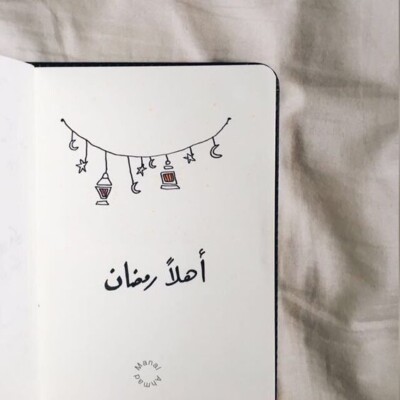 أهلاً رمضان
Manal Ahmad